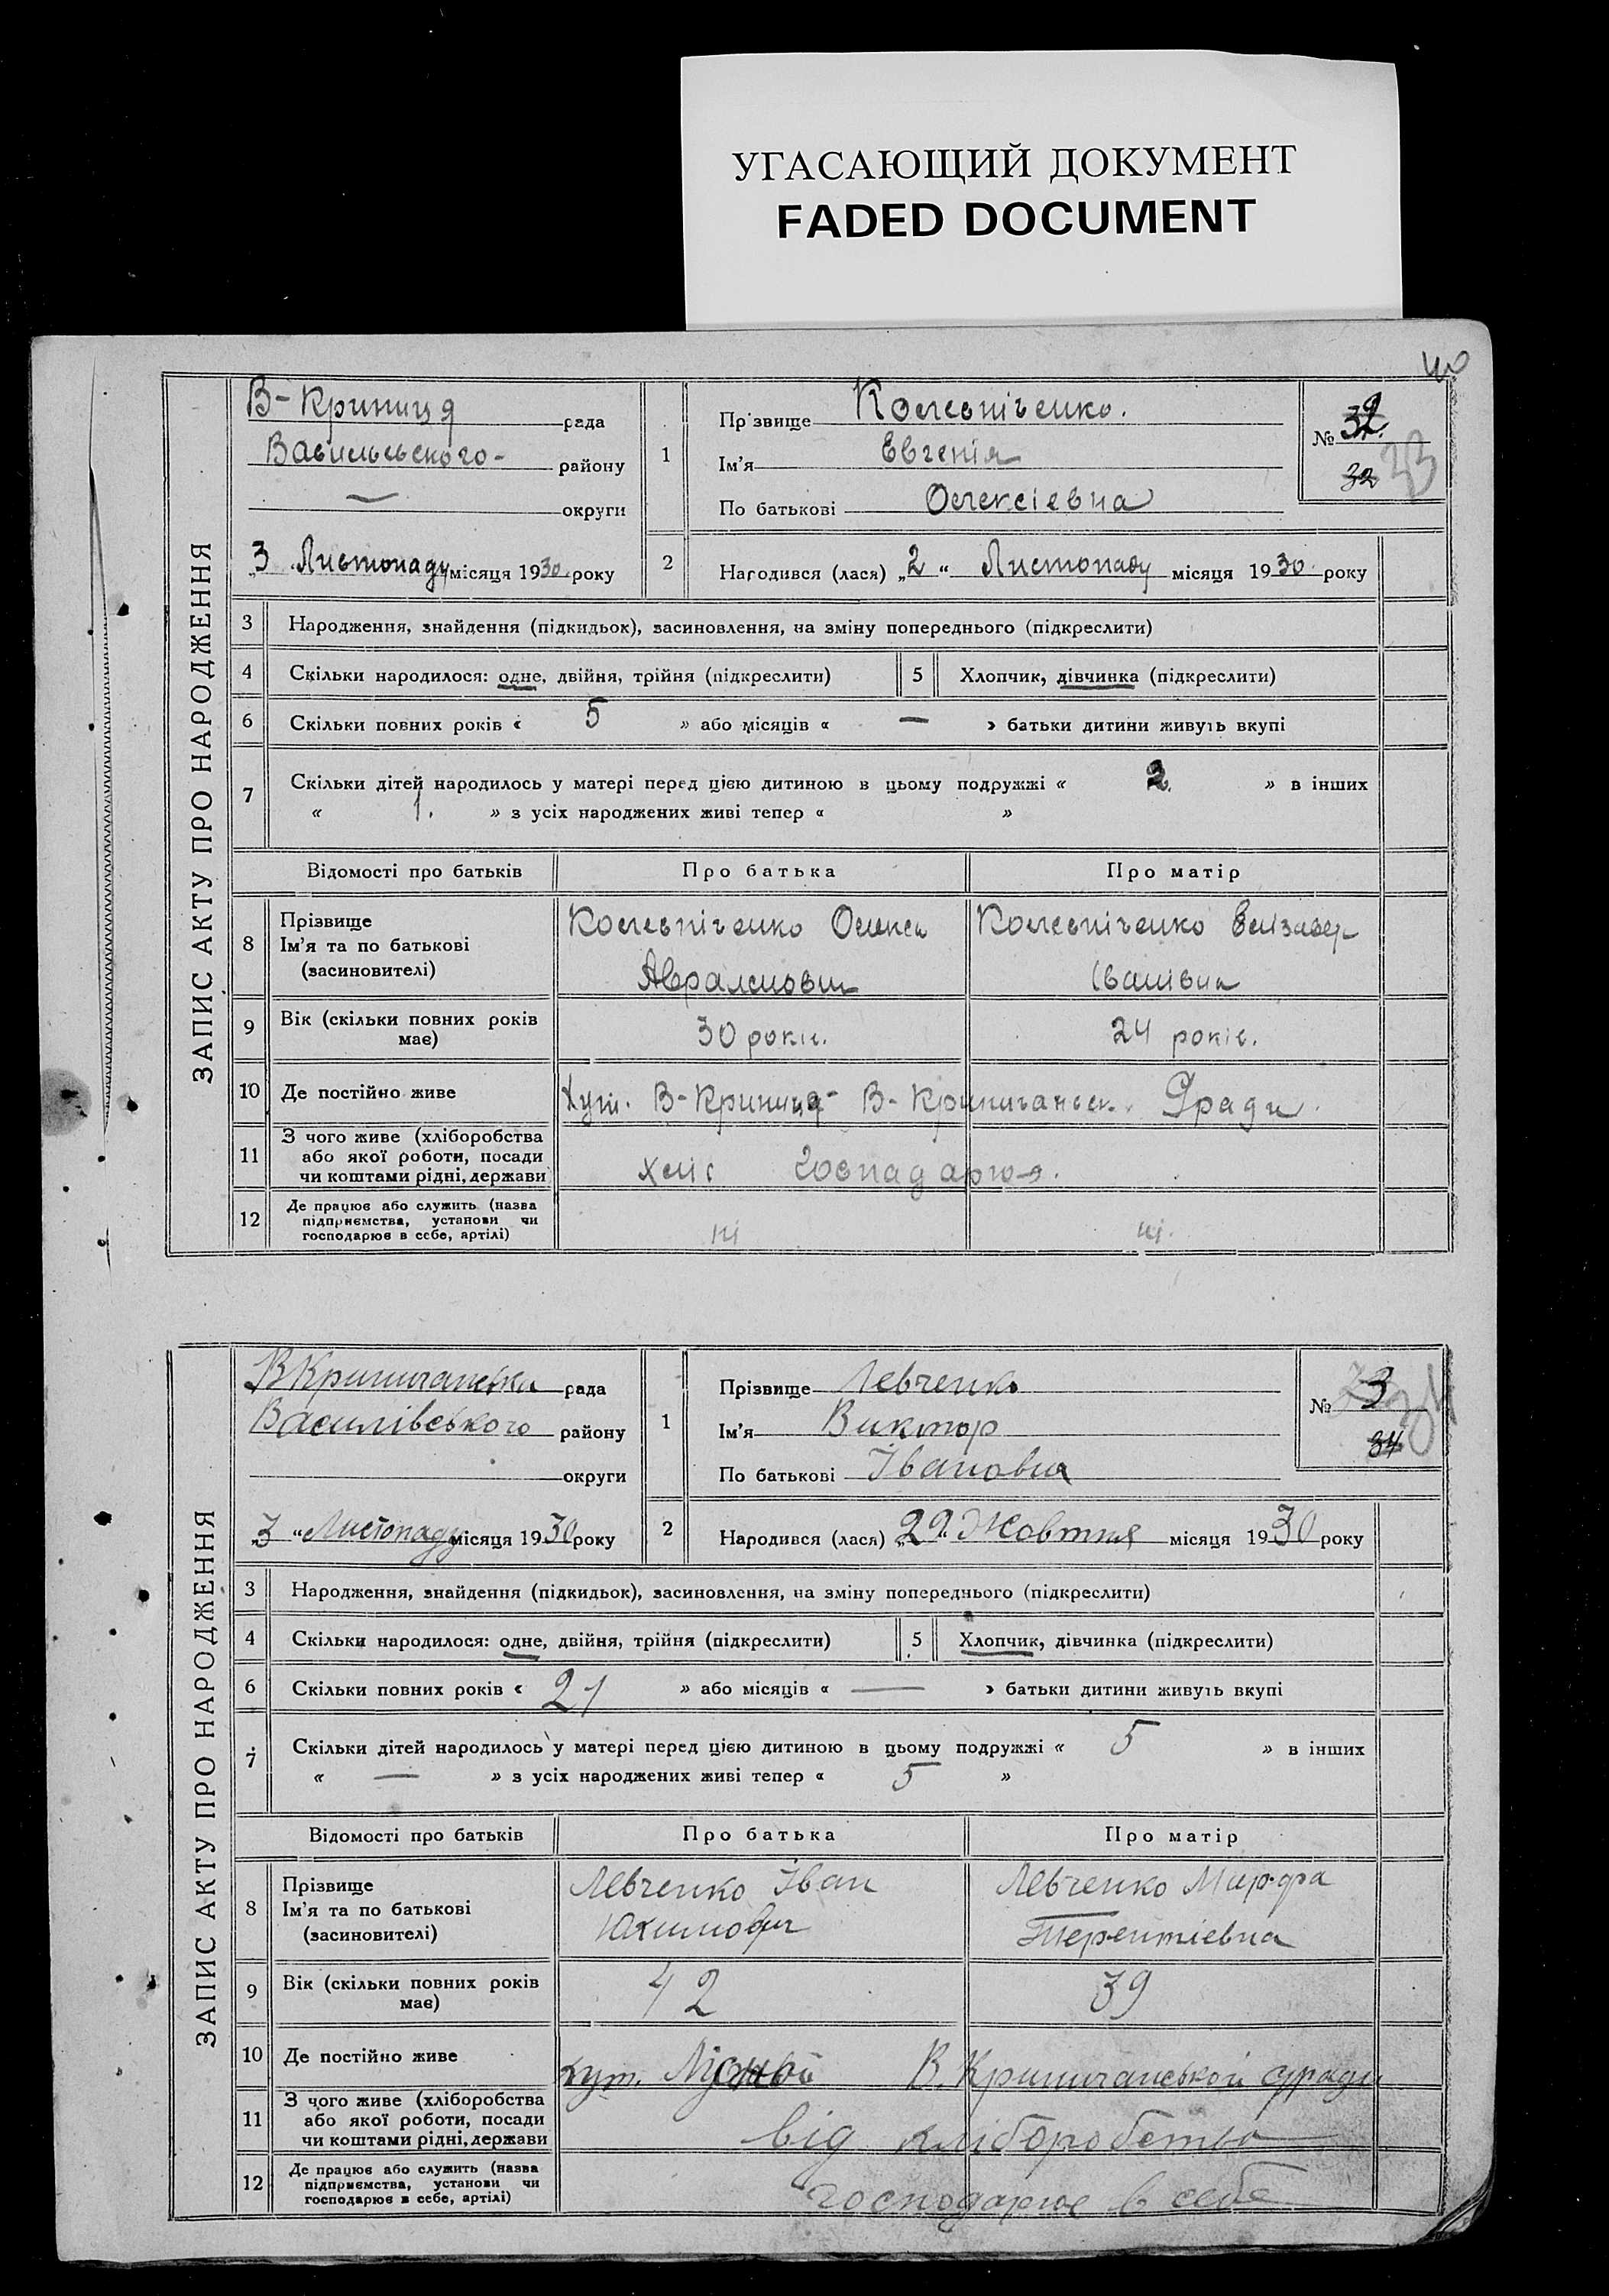 УГАСАЮЩИЙ ДОКУМЕНТ
FADED DOCUMENT
40
ЗАПИС АКТУ ПРО НАРОДЖЕННЯ
В-Криниця рада
Васильевского- району
— округи
„3 „ Листопаду місяця 1930 року
1
Прізвище
Ім'я Евгенія
По батькові Олексіевна
№ 32.
32 33
2
Народився (лася) „2 “ Листопаду місяця 1930 року
3 Народження, знайдення (підкидьок), засиновлення, на зміну попереднього (підкреслити)
4 Скільки народилося: одне, двійня, трійня (підкреслити) 5 Хлопчик, дівчинка (підкреслити)
6 Скільки повних років « 5 » або місяців « — » батьки дитини живуть вкупі
7 Скільки дітей народилось у матері перед цією дитиною в цьому подружжі « 2. » в інших
« 1. » з усіх народжених живі тепер « »
Відомості про батьків Про батька Про матір
8 Прізвище
Ім'я та по батькові
(засиновителі)
Олекса
Елізавер
Іванівна
9 Вік (скільки повних років
має) 30 роки. 24 років.
10 Де постійно живе Хут. В-Криниця- В-Криничанськ. Сради.
11 З чого живе (хліборобства
або якої роботи, посади
чи коштами рідні, держави
12 Де працює або служить (назва
підприємства, установи чи
господарює в себе, артілі) ні ні.
ЗАПИС АКТУ ПРО НАРОДЖЕННЯ
ВКриничанська рада
Василівського району
округи
„3 “ Листопаду місяця 1930 року
1
Прізвище Левченко
Ім'я Виктор
По батькові Івановна
№ 3
34
2
Народився (лася) „29 “ Жовтня місяця 1930 року
3 Народження, знайдення (підкидьок), засиновлення, на зміну попереднього (підкреслити)
4 Скільки народилося: одне, двійня, трійня (підкреслити) 5 Хлопчик, дівчинка (підкреслити)
6 Скільки повних років « 21 » або місяців « — » батьки дитини живуть вкупі
7 Скільки дітей народилось у матері перед цією дитиною в цьому подружжі « 5 » в інших
« — » з усіх народжених живі тепер « 5 »
Відомості про батьків Про батька Про матір
8 Прізвище
Ім'я та по батькові
(засиновителі)
Левченко Іван
Юхимович
Левченко
Терентіевна
9 Вік (скільки повних років
має) 42 39
10 Де постійно живе хут. В. Криничанської сради
11 З чого живе (хліборобства
або якої роботи, посади
чи коштами рідні, держави від хліборобства
12 Де працює або служить (назва
підприємства, установи чи
господарює в себе, артілі) господарює в себе